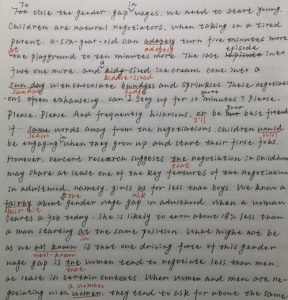 To in
The close the gender gap wages, we need to start young.
Children are natural negotiators. when taking on a tired
parent, a six-year-old can adeptly turn five minutes more
at adeptly episode
the playground to ten minutes more. The last episode into
just one more, and kidy-sized ice cream cone into a
kiddie-sized
sun day with chocolate and sprinkles. These negotia-
sundae
ons often exhausting, can I stay up for 10 minutes? Please.
your
Please. Please. And frequently hilarious, or be our best friend
I'll
if. Some words away from the negotiations, children would
seven will
be engaging when they grow up and start their first jobs.
in
However, recent research suggests the negotiation in childhood
that
may share at least one of the key features of the negotiation
in adulthood, namely, girls as for less than boys. We know a
the ask
fairby about gender wage gap in adulthood. When a woman
fair bit
starts a job today, she is likely to earn about 18% less than
a man starting at the same position. What might not be
in
as we all known is that one driving force of this gender
well-known
wage gap is the women tend to negotiate less than men,
that
at least in certain contexts. When women and men are ne-
a woman
gotiating with women, they tend to ask for about the same